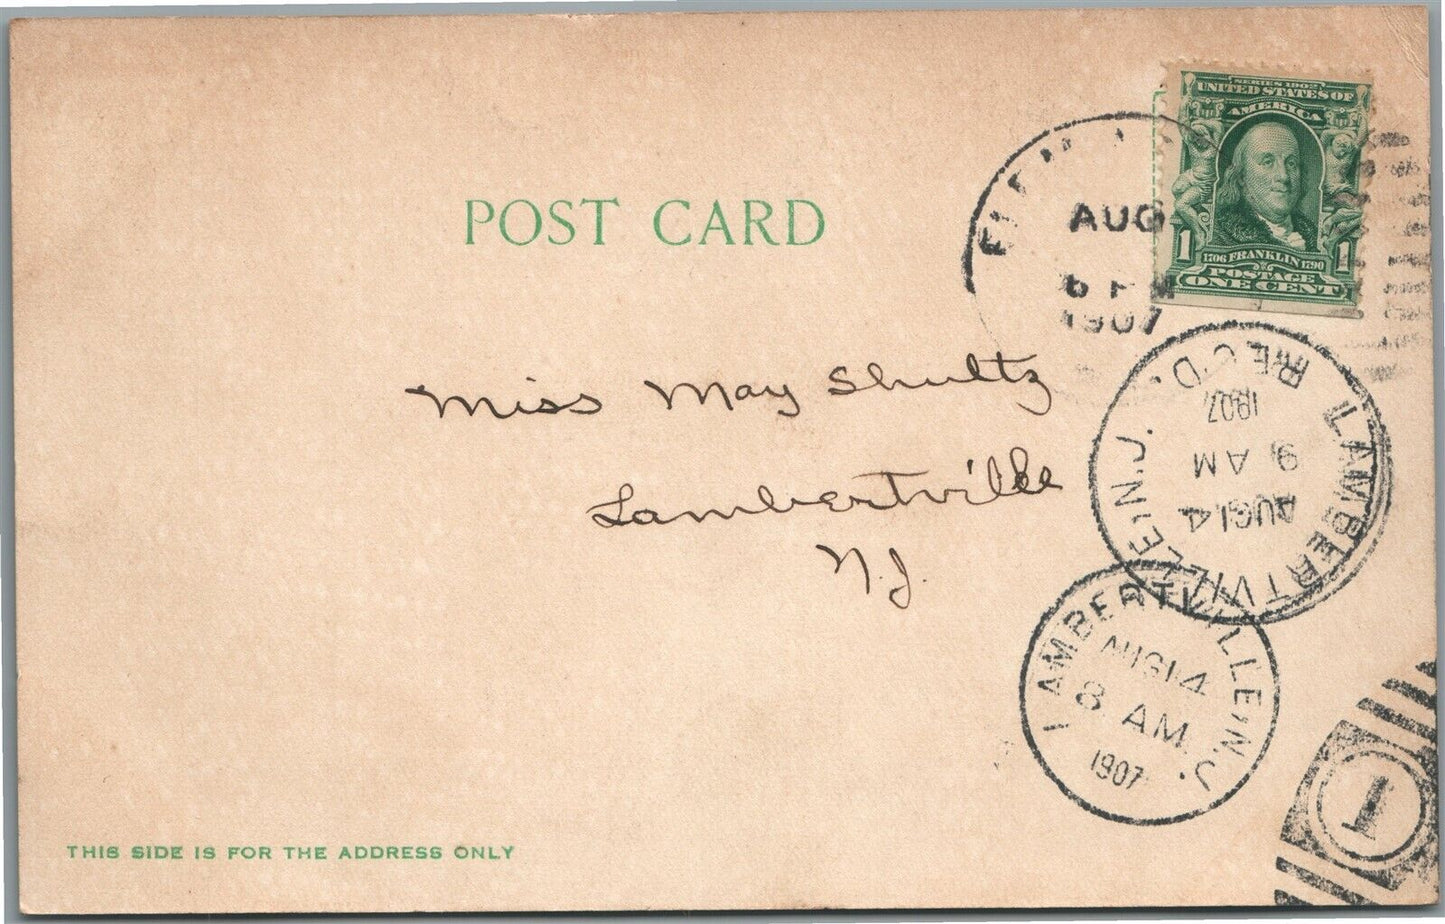 SERIES 1902
UNITED STATES OF
AMERICA
1 1
1706 FRANKLIN 1790
POSTAGE
ONE CENT
POST CARD
AUG
6 PM
1907
Miss May Shultz
Lambertville
N.J.
LAMBERTVILLE, N.J.
REC'D.
1907
9 AM
AUG 14
LAMBERTVILLE, N.J.
AUG 14
8 AM
1907
1
THIS SIDE IS FOR THE ADDRESS ONLY